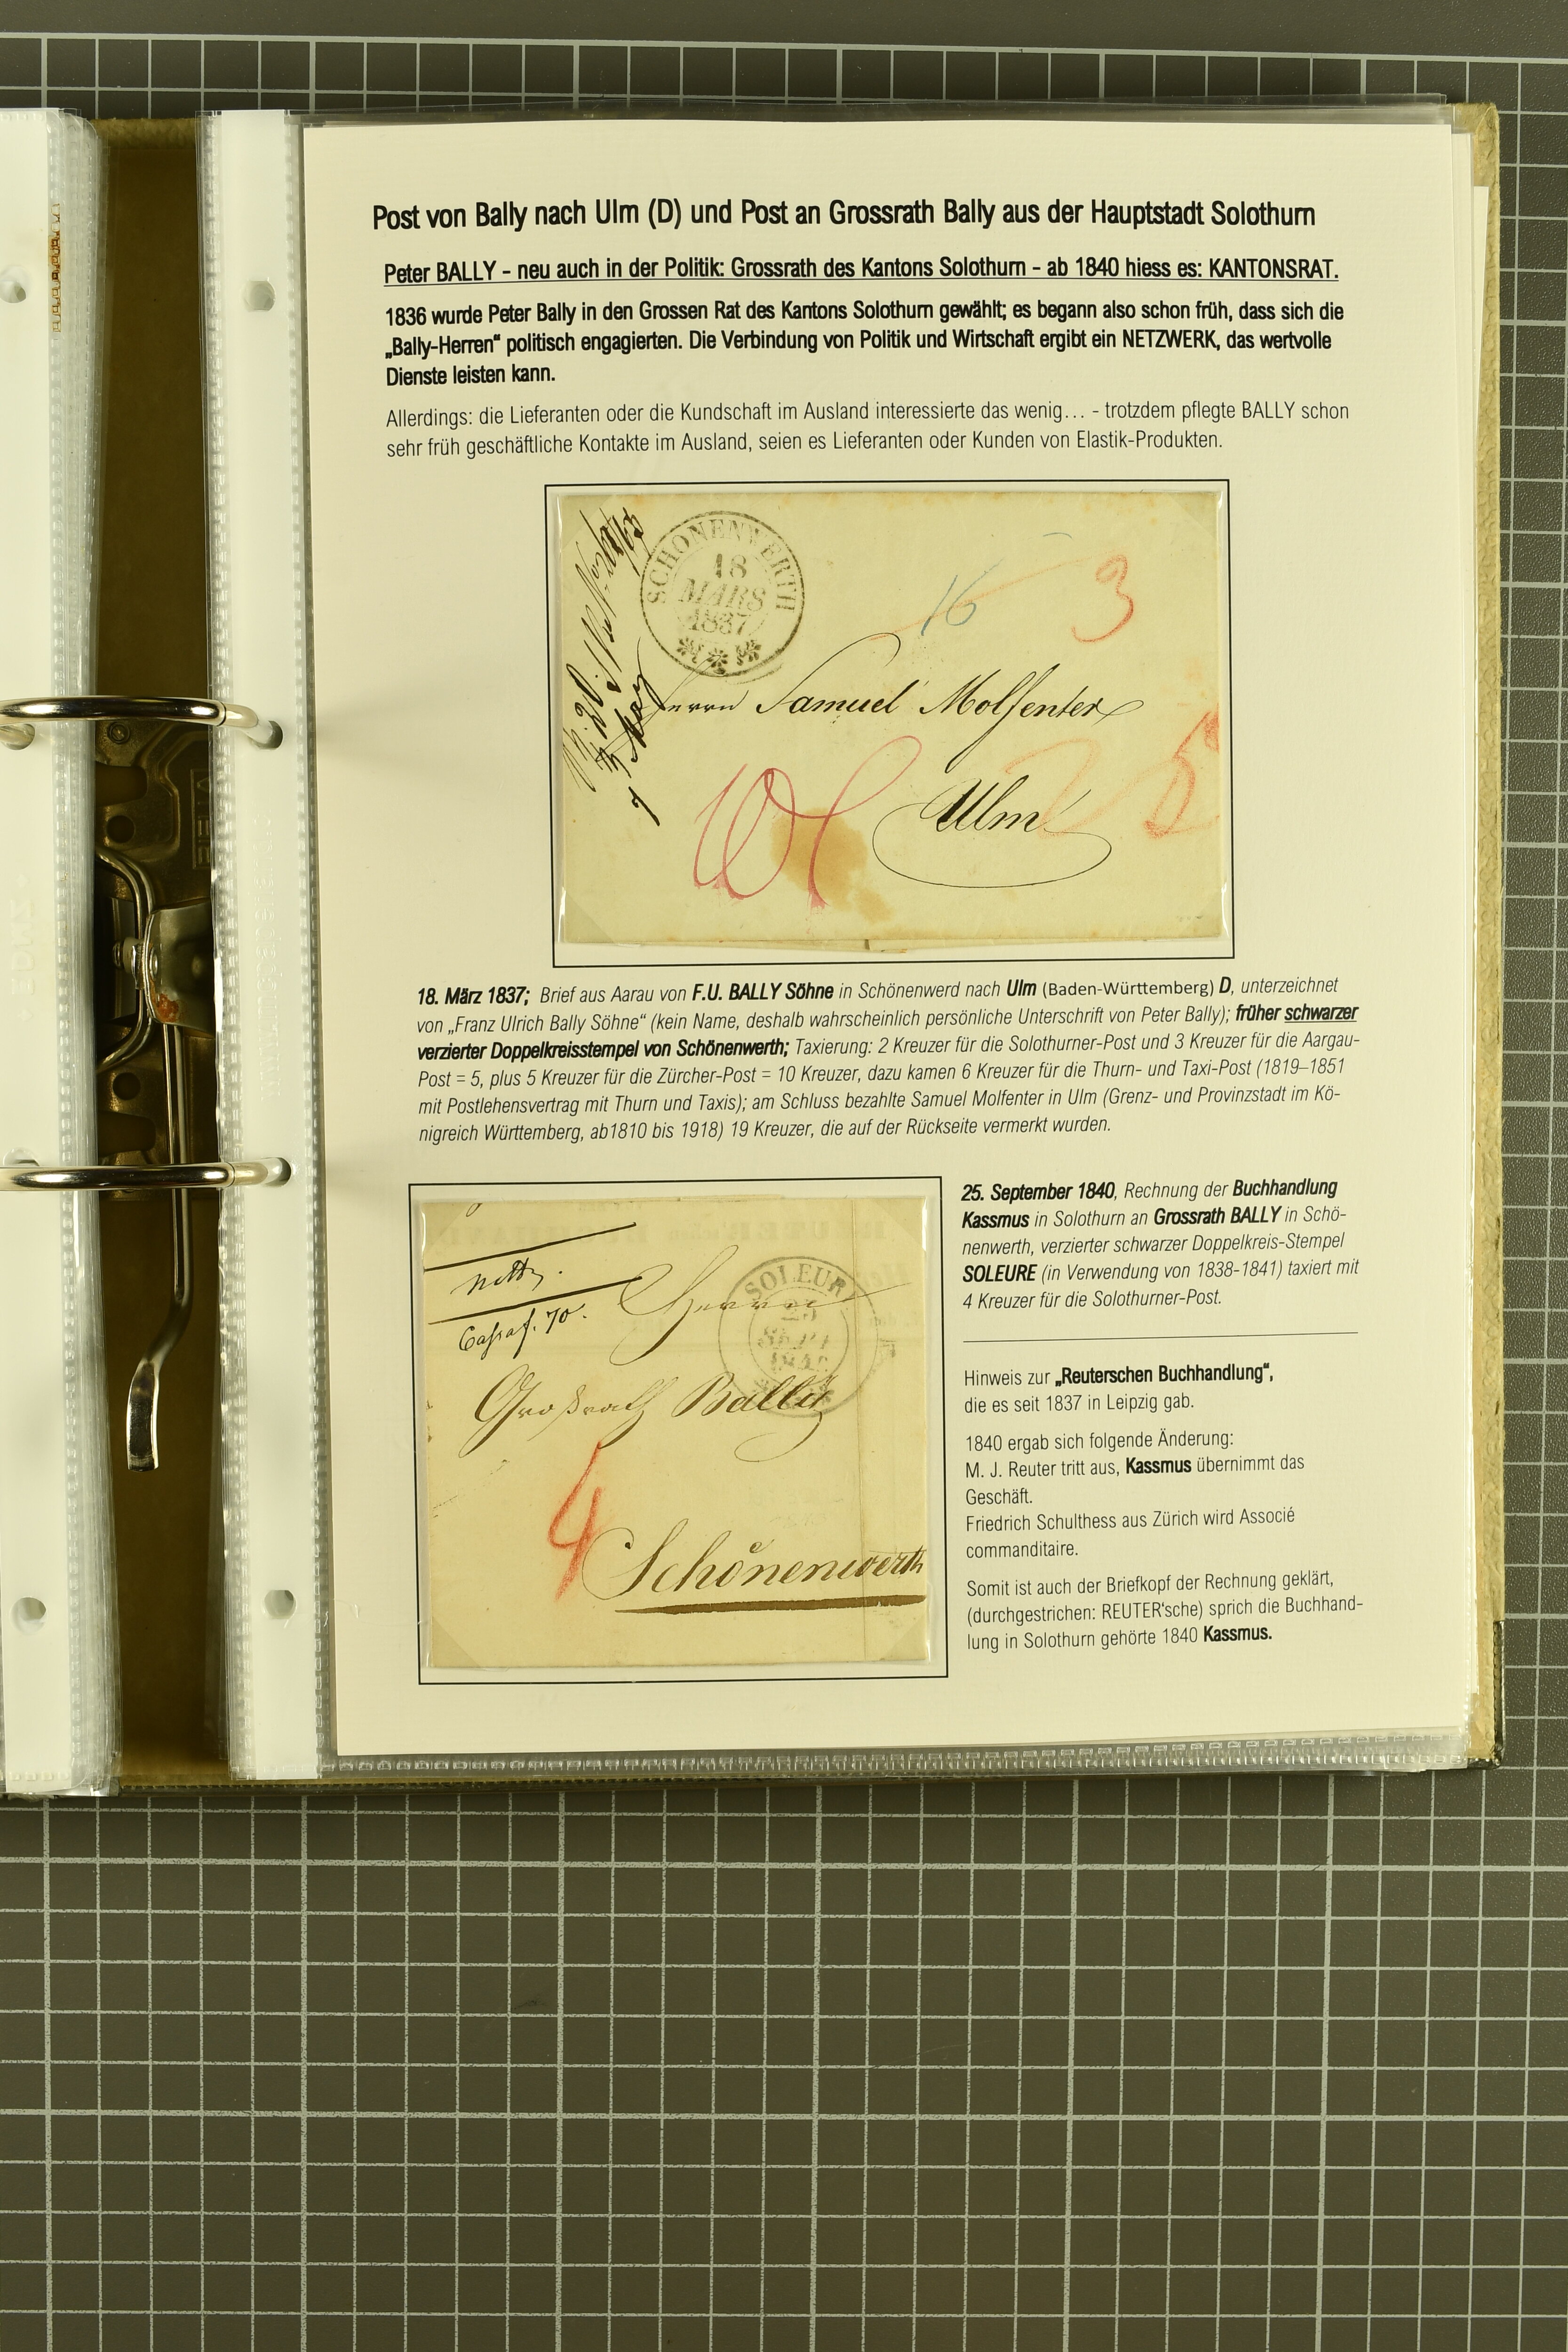 Post von Bally nach Ulm (D) und Post an Grossrath Bally aus der Hauptstadt Solothurn
Peter BALLY - neu auch in der Politik: Grossrath des Kantons Solothurn - ab 1840 hiess es: KANTONSRAT.
1836 wurde Peter Bally in den Grossen Rat des Kantons Solothurn gewählt; es begann also schon früh, dass sich die
„Bally-Herren“ politisch engagierten. Die Verbindung von Politik und Wirtschaft ergibt ein NETZWERK, das wertvolle
Dienste leisten kann.
Allerdings: die Lieferanten oder die Kundschaft im Ausland interessierte das wenig… - trotzdem pflegte BALLY schon
sehr früh geschäftliche Kontakte im Ausland, seien es Lieferanten oder Kunden von Elastik-Produkten.
SCHÖNENWERTH
18
MÄRS
1837
16
3
Herrn Samuel Molfenter
Ulm
18. März 1837; Brief aus Aarau von F.U. BALLY Söhne in Schönenwerd nach Ulm (Baden-Württemberg) D, unterzeichnet
von „Franz Ulrich Bally Söhne“ (kein Name, deshalb wahrscheinlich persönliche Unterschrift von Peter Bally); früher schwarzer
verzierter Doppelkreisstempel von Schönenwerth; Taxierung: 2 Kreuzer für die Solothurner-Post und 3 Kreuzer für die Aargau-
Post = 5, plus 5 Kreuzer für die Zürcher-Post = 10 Kreuzer, dazu kamen 6 Kreuzer für die Thurn- und Taxi-Post (1819–1851
mit Postlehensvertrag mit Thurn und Taxis); am Schluss bezahlte Samuel Molfenter in Ulm (Grenz- und Provinzstadt im Kö-
nigreich Württemberg, ab1810 bis 1918) 19 Kreuzer, die auf der Rückseite vermerkt wurden.
SOLEURE
25
SEPT
1840
Herrn
Großrath Bally
4
Schönenwerth
25. September 1840, Rechnung der Buchhandlung
Kassmus in Solothurn an Grossrath BALLY in Schö-
nenwerth, verzierter schwarzer Doppelkreis-Stempel
SOLEURE (in Verwendung von 1838-1841) taxiert mit
4 Kreuzer für die Solothurner-Post.
Hinweis zur „Reuterschen Buchhandlung“,
die es seit 1837 in Leipzig gab.
1840 ergab sich folgende Änderung:
M. J. Reuter tritt aus, Kassmus übernimmt das
Geschäft.
Friedrich Schulthess aus Zürich wird Associé
commanditaire.
Somit ist auch der Briefkopf der Rechnung geklärt,
(durchgestrichen: REUTER‘sche) sprich die Buchhand-
lung in Solothurn gehörte 1840 Kassmus.